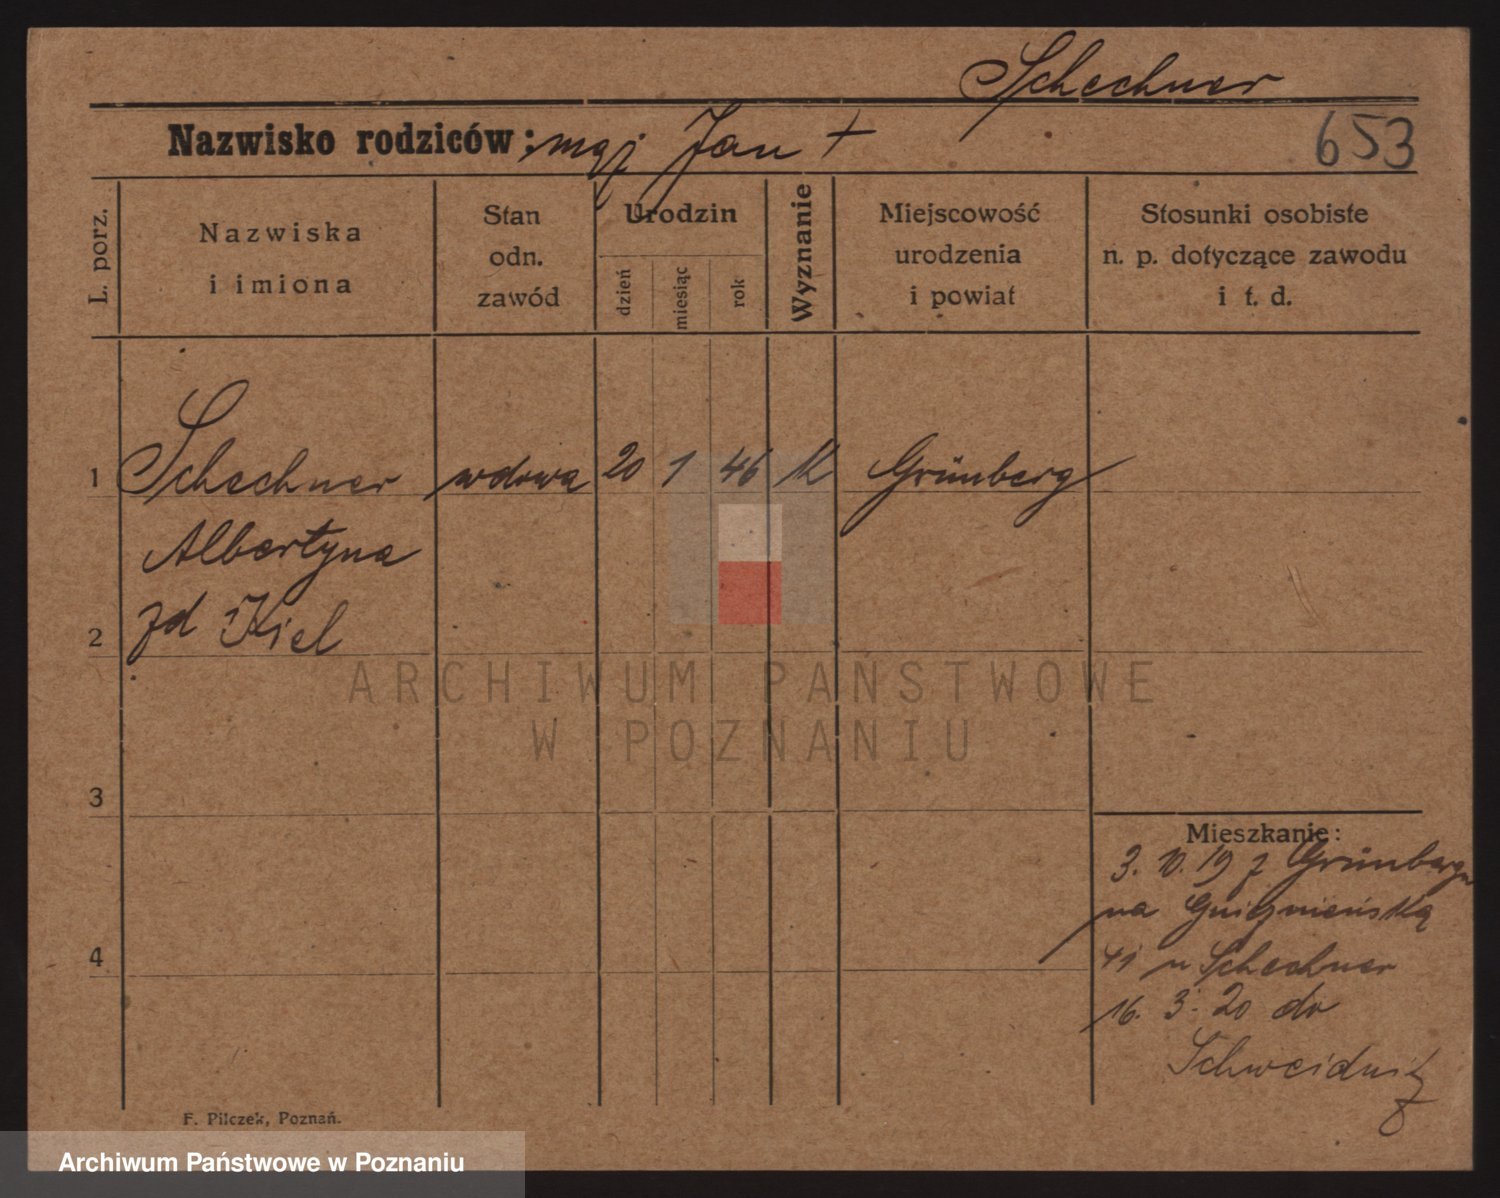 Schechner
Nazwisko rodziców: mąż Jan +
653
L. porz.
Nazwiska
i imiona
Stan
odn.
zawód
Urodzin
dzień
miesiąc
rok
Wyznanie
Miejscowość
urodzenia
i powiat
Stosunki osobiste
n. p. dotyczące zawodu
i t. d.
1 Schechner wdowa 20 1 46 k Grünberg
Albertyna
2 zd Kiel
ARCHIWUM PAŃSTWOWE
W POZNANIU
3
Mieszkanie:
3. 10. 19 z Grünbergu
na Gnieźnieńską
4
41 u Schechner
16. 3. 20 do
Schweidnitz
F. Pilczek, Poznań.
Archiwum Państwowe w Poznaniu